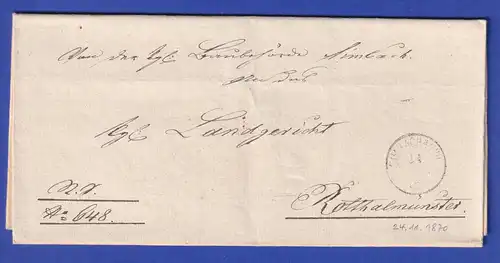 Von der Kgl. Baubehörde Simbach.
An das
Kgl. Landgericht
R. S.
No 648.
Rotthalmünster.
24.11.1870